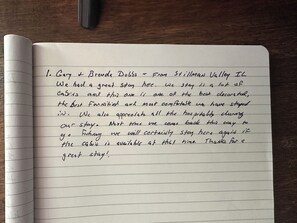 1. Gary + Brenda Dobbs - From Stillman Valley IL
We had a great stay here. We stay in a lot of
cabins and this one is one of the best decorated,
the best furnished and most comfortable we have stayed
in. We also appreciate all the hospitality during
our stay. Next time we come back this way to
go fishing we will certainly stay here again if
the cabin is available at that time. Thanks for a
great stay!